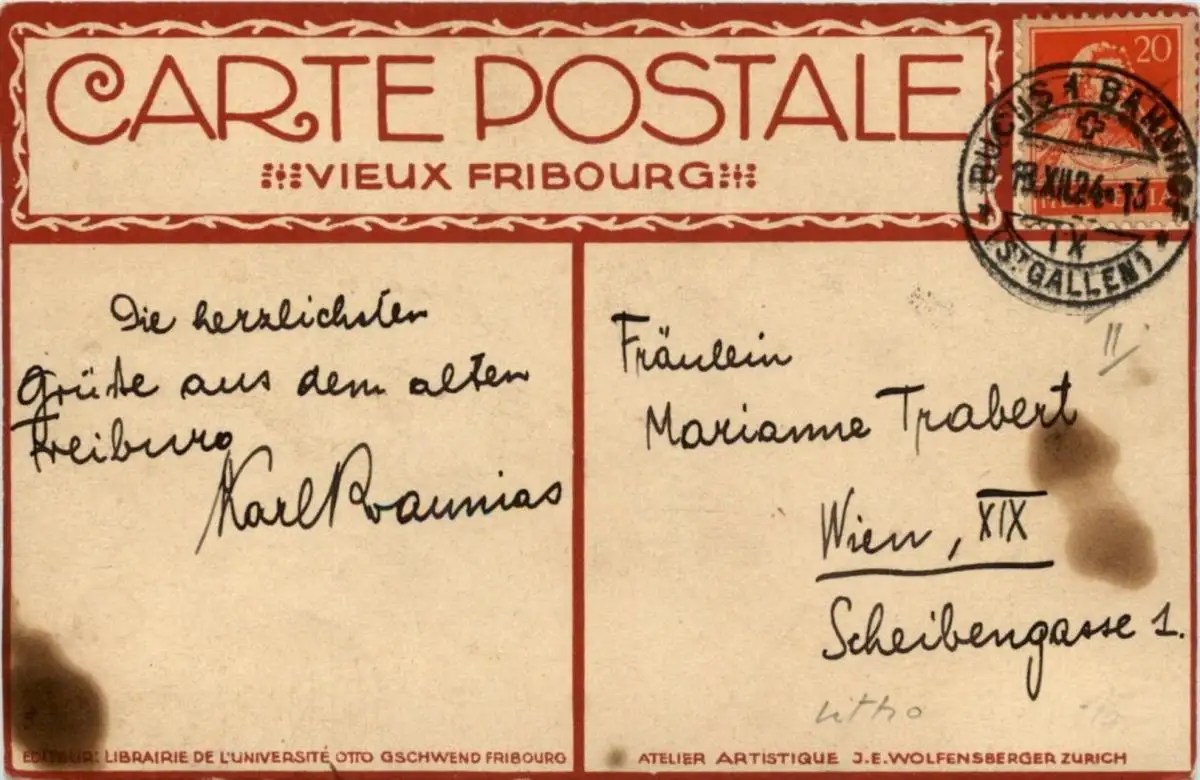 CARTE POSTALE
VIEUX FRIBOURG
20
BUCHS 1 BAHNHOF
XII.24-13
IX
(ST. GALLEN)
HELVETIA
Die herzlichsten
Grüße aus dem alten
Freiburg
Karl
Fräulein
Marianne Trabert
Wien, XIX
Scheibengasse 1.
II
Litho
EDITEUR: LIBRAIRIE DE L'UNIVERSITÉ OTTO GSCHWEND FRIBOURG
ATELIER ARTISTIQUE J.E. WOLFENSBERGER ZURICH